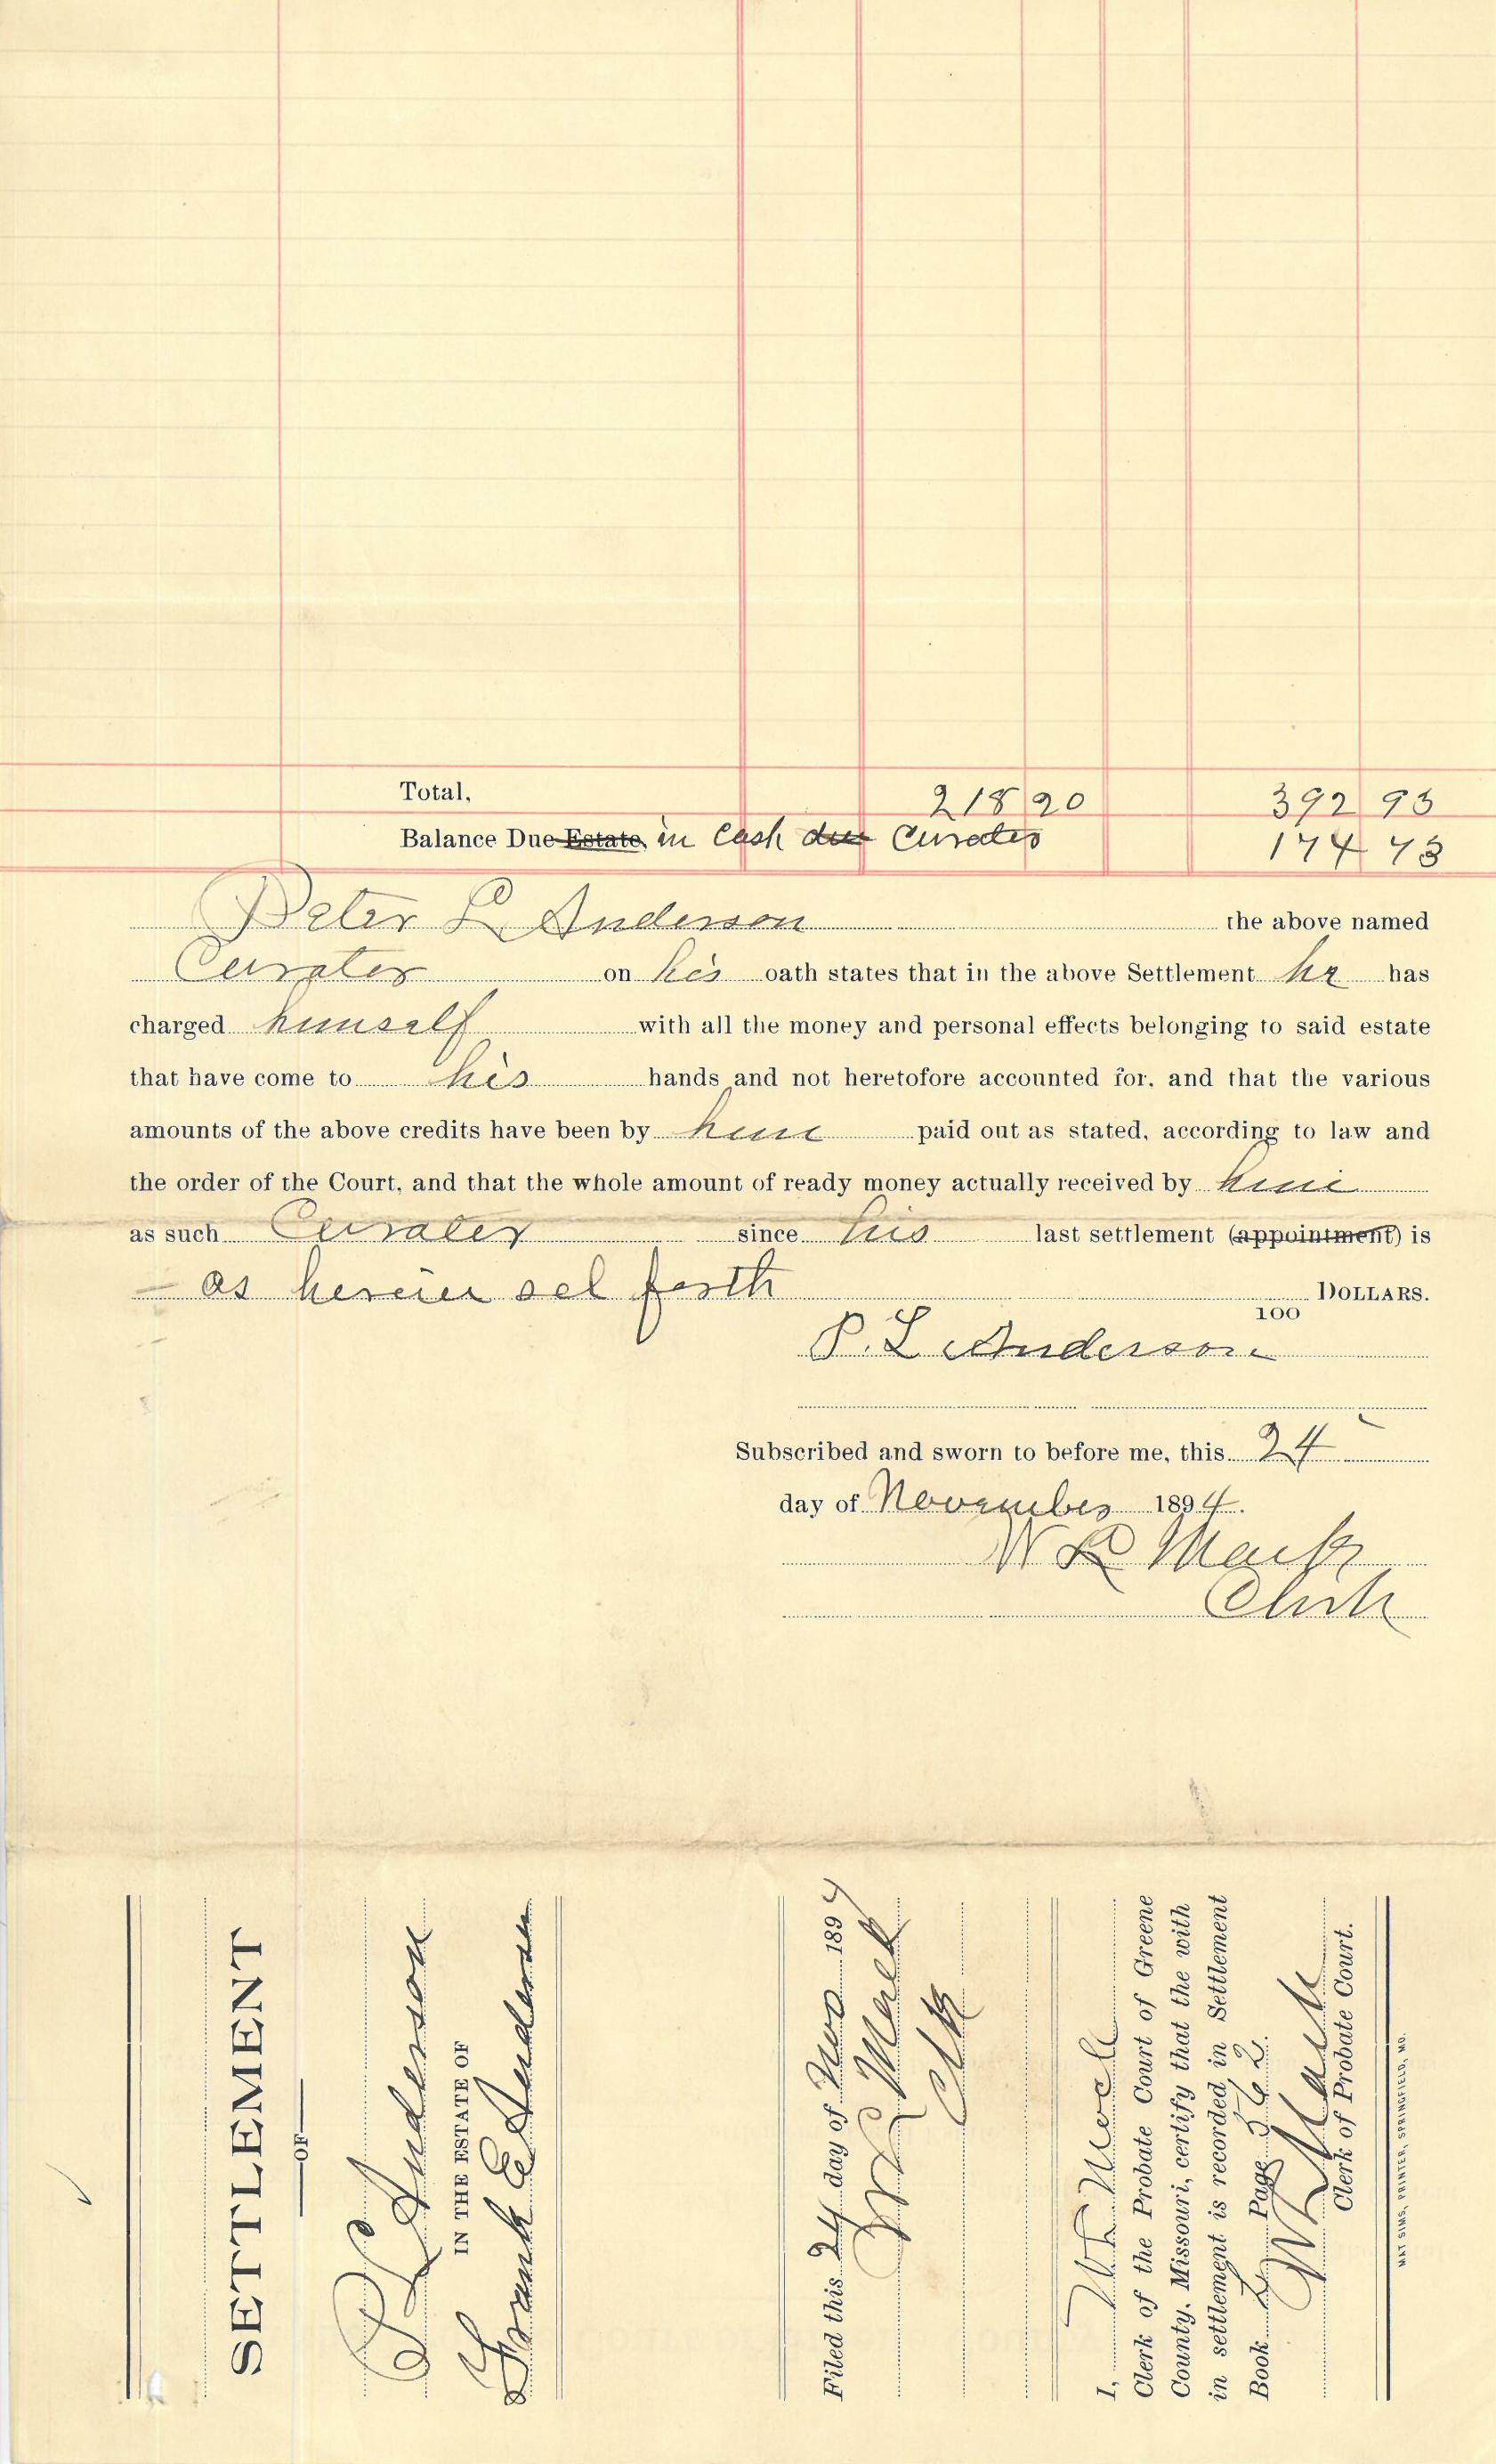 Total, 218 20 392 93
Balance Due Estate, in Cash due Curator 174 73
Peter L Anderson the above named
Curator on his oath states that in the above Settlement he has
charged himself with all the money and personal effects belonging to said estate
that have come to his hands and not heretofore accounted for, and that the various
amounts of the above credits have been by him paid out as stated, according to law and
the order of the Court, and that the whole amount of ready money actually received by him
as such Curator since his last settlement (appointment) is
as herein set forth DOLLARS.
100
P. L. Anderson
Subscribed and sworn to before me, this 24
day of November 1894.
W L Mack
Clerk
SETTLEMENT
OF
P L Anderson
IN THE ESTATE OF
Frank E Anderson
Filed this 24 day of Nov 1894
W L Mack
Clk
I, W L Mack
Clerk of the Probate Court of Greene
County, Missouri, certify that the with
in settlement is recorded in Settlement
Book Page 362.
W L Mack
Clerk of Probate Court.
MAT SIMS, PRINTER, SPRINGFIELD, MO.